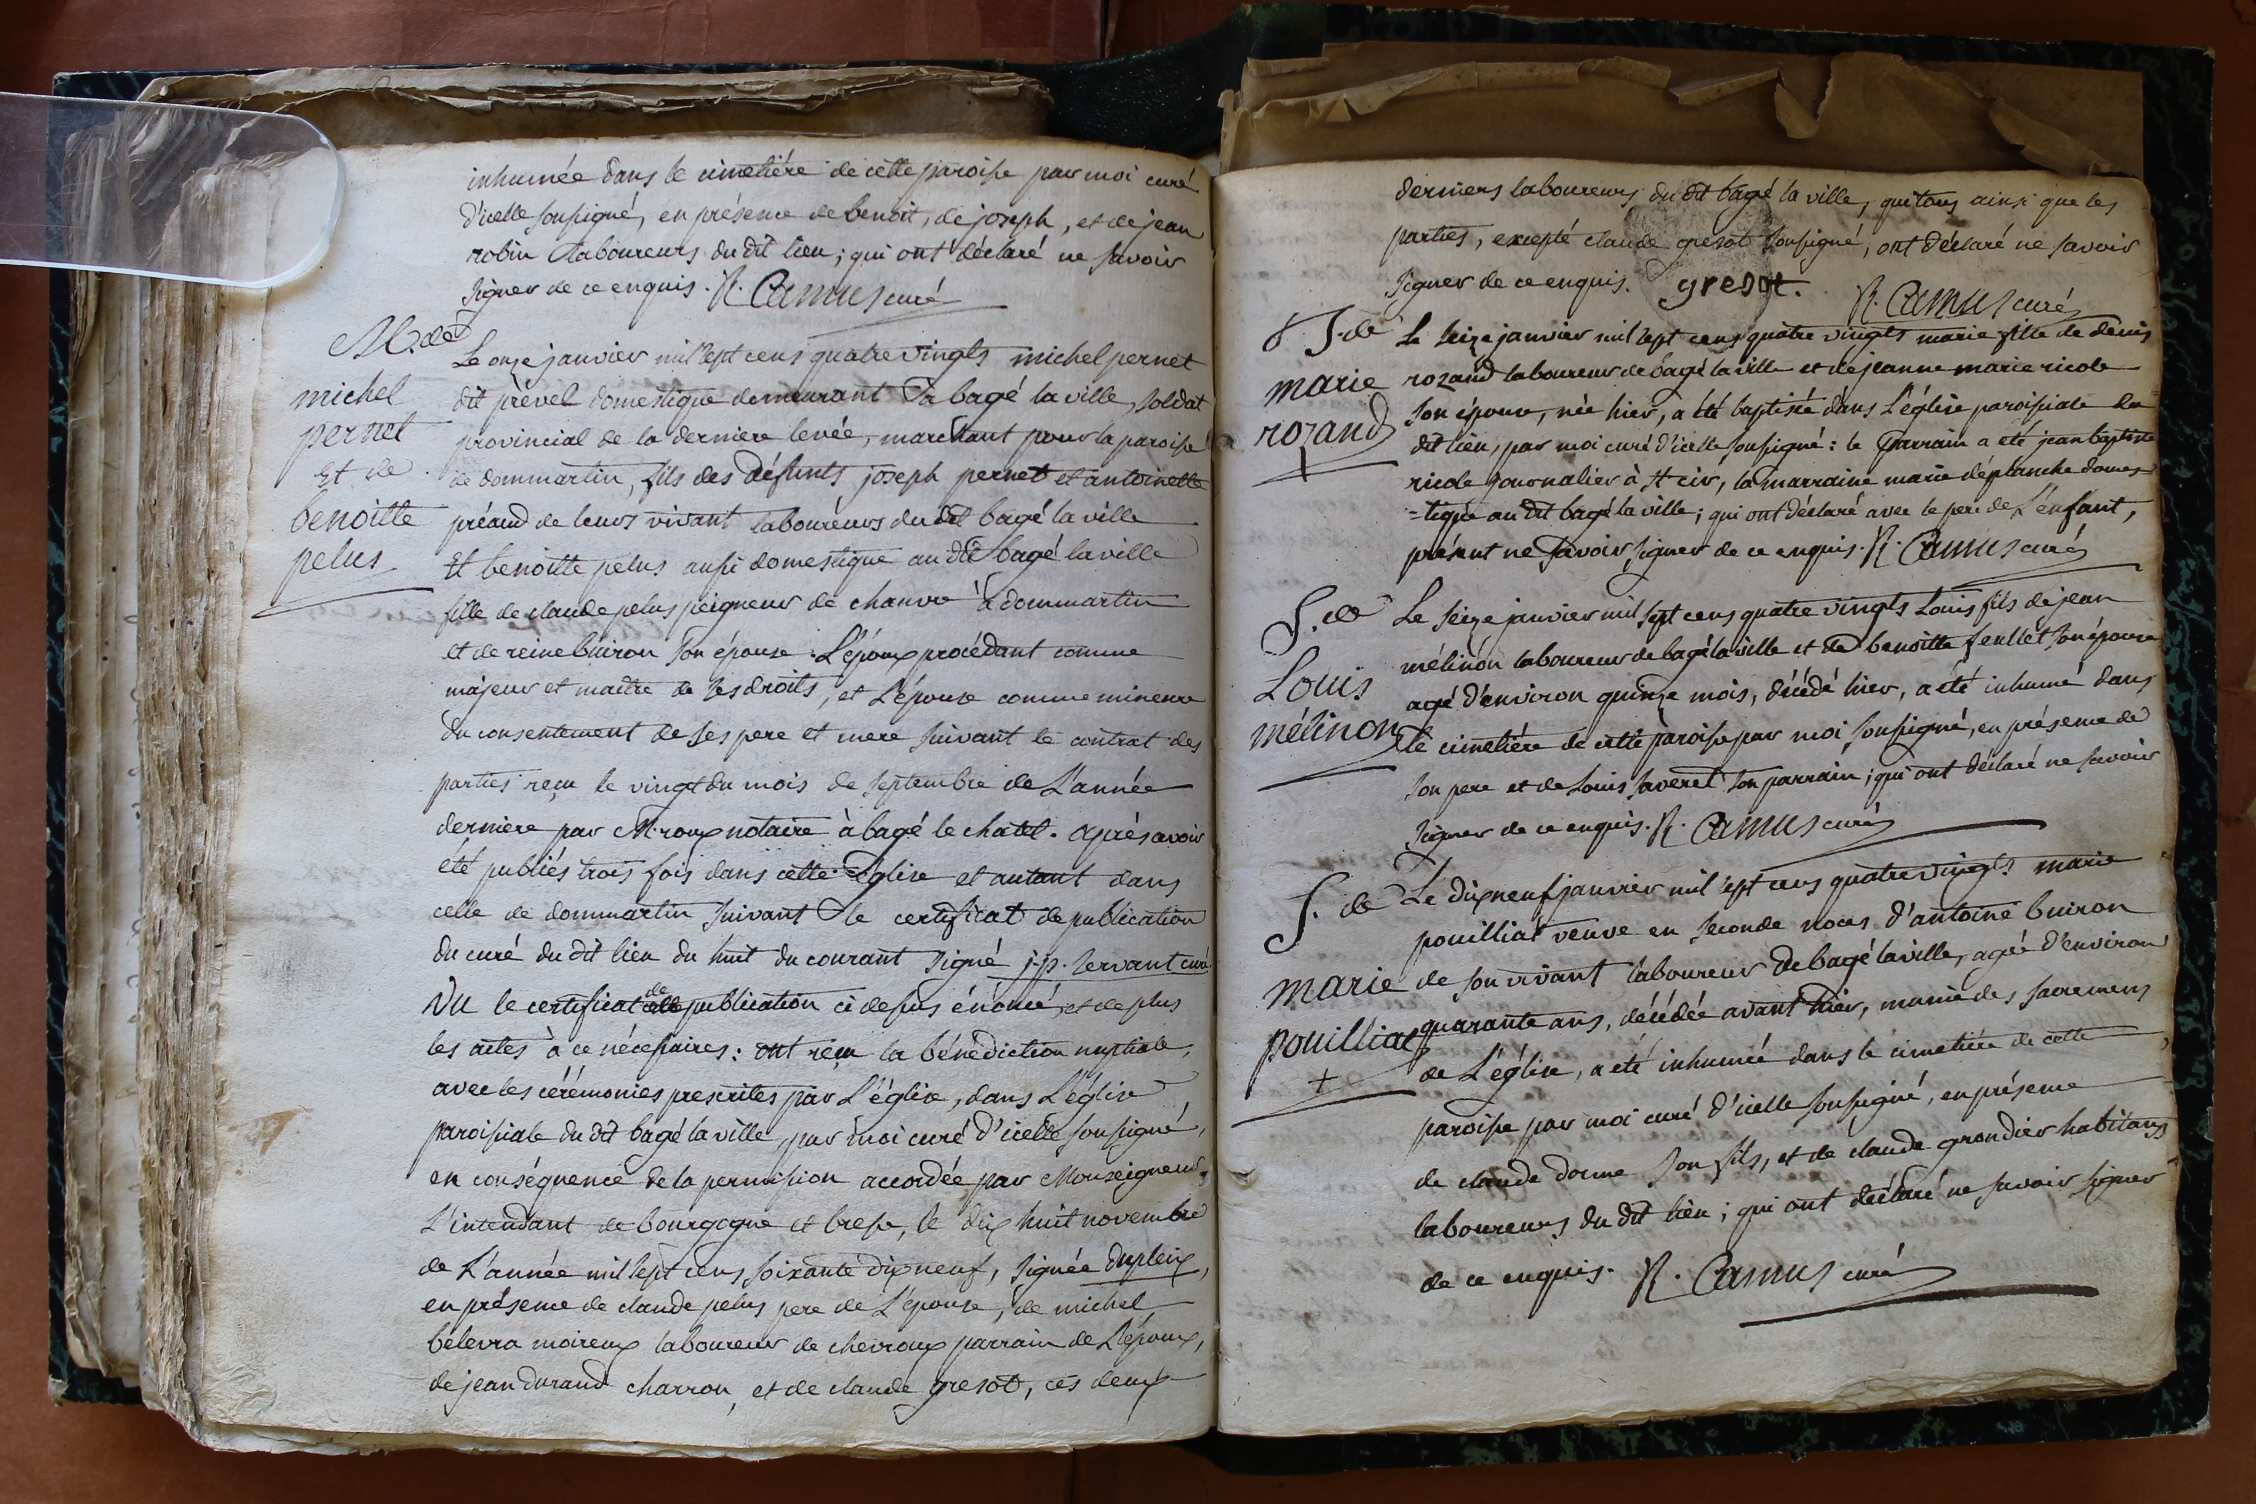 inhumée dans le cimetiére de cette paroisse par moi curé
d'icelle soussigné, en présence de benoit, de joseph, et de jean
robin laboureurs du dit lieu; qui ont déclaré ne savoir
signer de ce enquis. R. Camus curé
M. de
michel
pernet
et de
benoitte
pelus
Le onze janvier mil sept cens quatre vingts michel pernet
dit prèvel domestique demeurant à bagé la ville, soldat
provincial de la derniere levée, marchant pour la paroisse
de dommartin, fils des défunts joseph pernet et antoinette
préaud de leurs vivant laboureurs du dit bagé la ville
Et benoitte pelus aussi domestique au dit bagé la ville
fille de claude pelus peigneur de chanvre à dommartin
et de reine buiron son épouse. L'époux procédant comme
majeur et maitre de ses droits, et L'épouse comme mineure
du consentement de ses pere et mere suivant le contrat des
parties reçu le vingt du mois de septembre de L'année
derniere par M. roux notaire à bagé le chatel. après avoir
été publiés trois fois dans cette Eglise et autant dans
celle de dommartin suivant le certificat de publication
du curé du dit lieu du huit du courant signé j. p. servant curé
Vu le certificat de publication ci dessus énoncé, et de plus
les actes à ce nécessaires: ont reçu la bénédiction nuptiale,
avec les cérémonies prescrites par L'église, dans L'église
paroissiale du dit bagé la ville, par moi curé d'icelle soussigné,
en conséquence de la permission accordée par Monseigneur
L'intendant de bourgogne et bresse, le dix huit novembre
de L'année mil sept cens soixante dix neuf, signée dupleix,
en présence de claude pelus pere de L'épouse, de michel
belevra moireux laboureur de chevroux parrain de L'époux,
de jean durand charron, et de claude gresot, ces deux
derniers laboureurs du dit bagé la ville, qui tous ainsi que les
parties, excepté claude gresot soussigné, ont déclaré ne savoir
signer de ce enquis. gresot. R. Camus curé
B. de
marie
rozand
Le seize janvier mil sept cens quatre vingts marie fille de denis
rozand laboureur de bagé la ville et de jeanne marie ricole
son épouse, née hier, a été baptisée dans L'église paroissiale du
dit lieu, par moi curé d'icelle soussigné: le parrain a été jean baptiste
ricole journalier à St cir, la marraine marie déplanche domes
=tique au dit bagé la ville; qui ont déclaré avec le pere de L'enfant,
présent ne savoir signer de ce enquis. R. Camus curé
S. de
Louis
mélinon
Le seize janvier mil sept cens quatre vingts Louis fils de jean
mélinon laboureur de bagé la ville et de benoitte feullet son épouse
agé d'environ quinze mois, décédé hier, a été inhumé dans
le cimetiére de cette paroisse par moi soussigné, en présence de
son pere et de Louis saveret son parrain; qui ont déclaré ne savoir
signer de ce enquis. R. Camus curé
S. de
marie
pouilliat
Le dix neuf janvier mil sept cens quatre vingts marie
pouilliat veuve en seconde noces d'antoine buiron
de son vivant laboureur de bagé la ville, agée d'environ
quarante ans, décédée avant hier, munie des sacremens
de L'église, a été inhumée dans le cimetiére de cette
paroisse par moi curé d'icelle soussigné, en présence
de claude dorme son fils, et de claude grondier habitans
laboureurs du dit lieu; qui ont déclaré ne savoir signer
de ce enquis. R. Camus curé